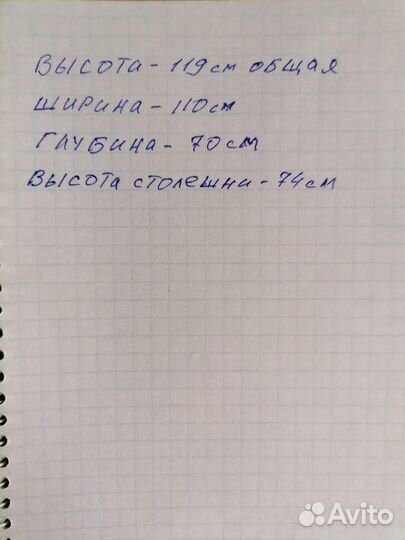 ВЫСОТА - 119 см ОБЩАЯ
ШИРИНА - 110 см
ГЛУБИНА - 70 см
ВЫСОТА СТОЛЕШНИ - 74 см
Avito